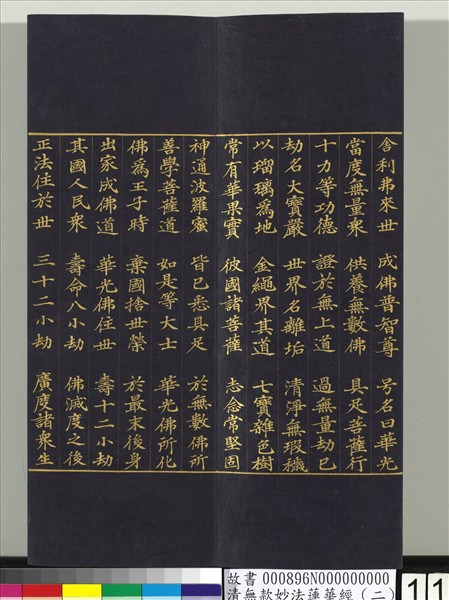 舍利弗來世 成佛普智尊 号名曰華光
當度無量衆 供養無數佛 具足菩薩行
十力等功德 證於無上道 過無量劫已
劫名大寶嚴 世界名離垢 清淨無瑕穢
以瑠璃為地 金繩界其道 七寶雜色樹
常有華果實 彼國諸菩薩 志念常堅固
神通波羅蜜 皆已悉具足 於無數佛所
善學菩薩道 如是等大士 華光佛所化
佛為王子時 棄國捨世榮 於最末後身
出家成佛道 華光佛住世 壽十二小劫
其國人民衆 壽命八小劫 佛滅度之後
正法住於世 三十二小劫 廣度諸衆生
故書 000896N000000000
清無款妙法蓮華經（二）
11